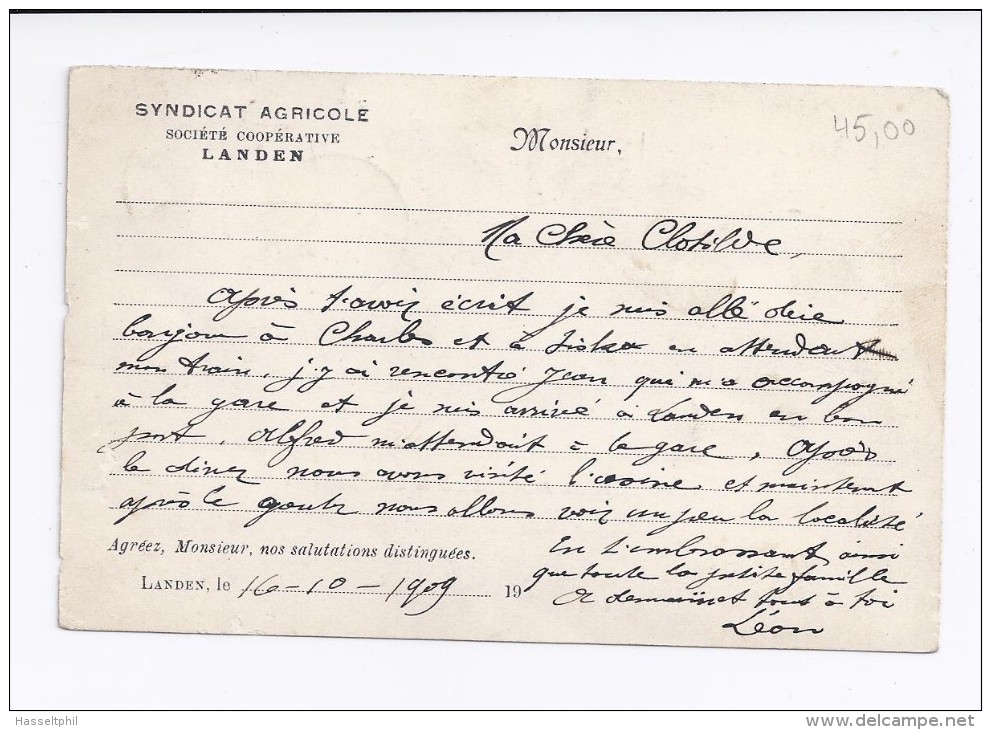 SYNDICAT AGRICOLE
SOCIÉTÉ COOPÉRATIVE
LANDEN
Monsieur,
45,00
Ma Chère Clotilde,
Après t'avoir écrit je suis allé dire
bonjour à Charles et à en attendant
mon train, j'y ai rencontré Jean qui m'a accompagné
à la gare et je suis arrivé à Landen en bon
port, Alfred m'attendait à la gare, après
le diner nous avons visité l'usine et maintenant
après le gouter nous allons voir un peu la localité
Agréez, Monsieur, nos salutations distinguées.
En t'embrassant, ainsi
que toute la petite famille
LANDEN, le 16-10-1909 19
A demain et tout à toi
Léon
Hasseltphil
www.delcampe.net